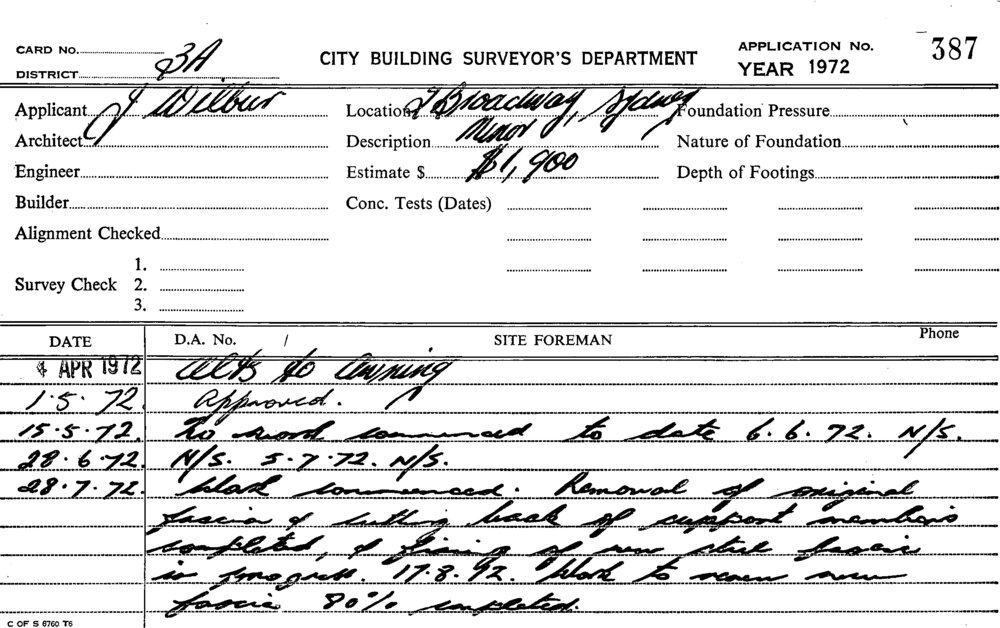 CARD No. CITY BUILDING SURVEYOR'S DEPARTMENT APPLICATION No. 387
DISTRICT 3A YEAR 1972
Applicant J Wilbur Location Broadway, Sydney Foundation Pressure
Architect Description Minor Nature of Foundation
Engineer Estimate $ $1,900 Depth of Footings
Builder Conc. Tests (Dates)
Alignment Checked
1.
Survey Check 2.
3.
DATE D.A. No. / SITE FOREMAN Phone
4 APR 1972 Alts to Awning
1.5.72 Approved.
15.5.72. No work commenced to date 6.6.72. N/S.
28.6.72. N/S. 5.7.72. N/S.
28.7.72. Work commenced. Removal of original
fascia & cutting back of support members
completed, & fixing of new steel fascia
in progress. 17.8.72. Work to new
fascia 80% completed.
C OF S 6760 T6